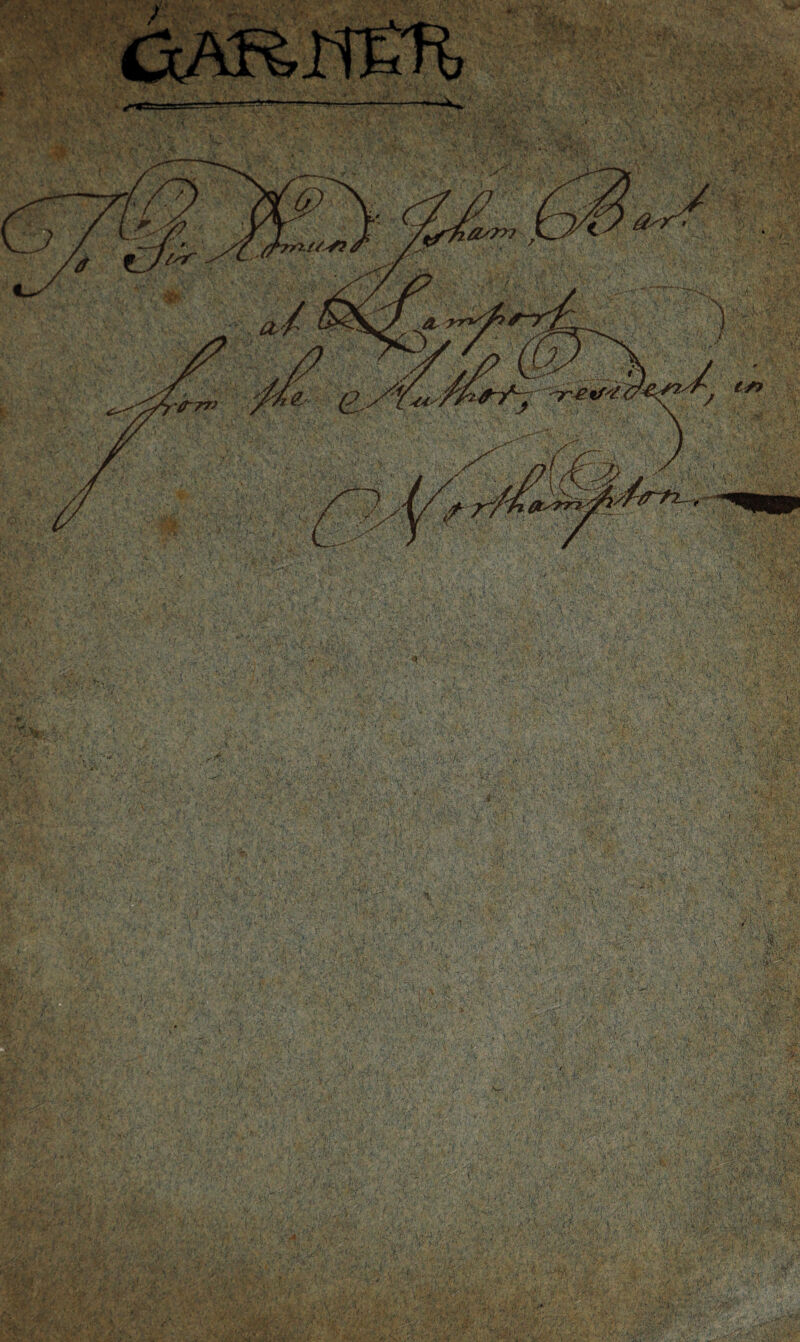 GARNER
To Sir Edmund Isham, Bart
at Lamport
from the Author, resident, in
Northampton.